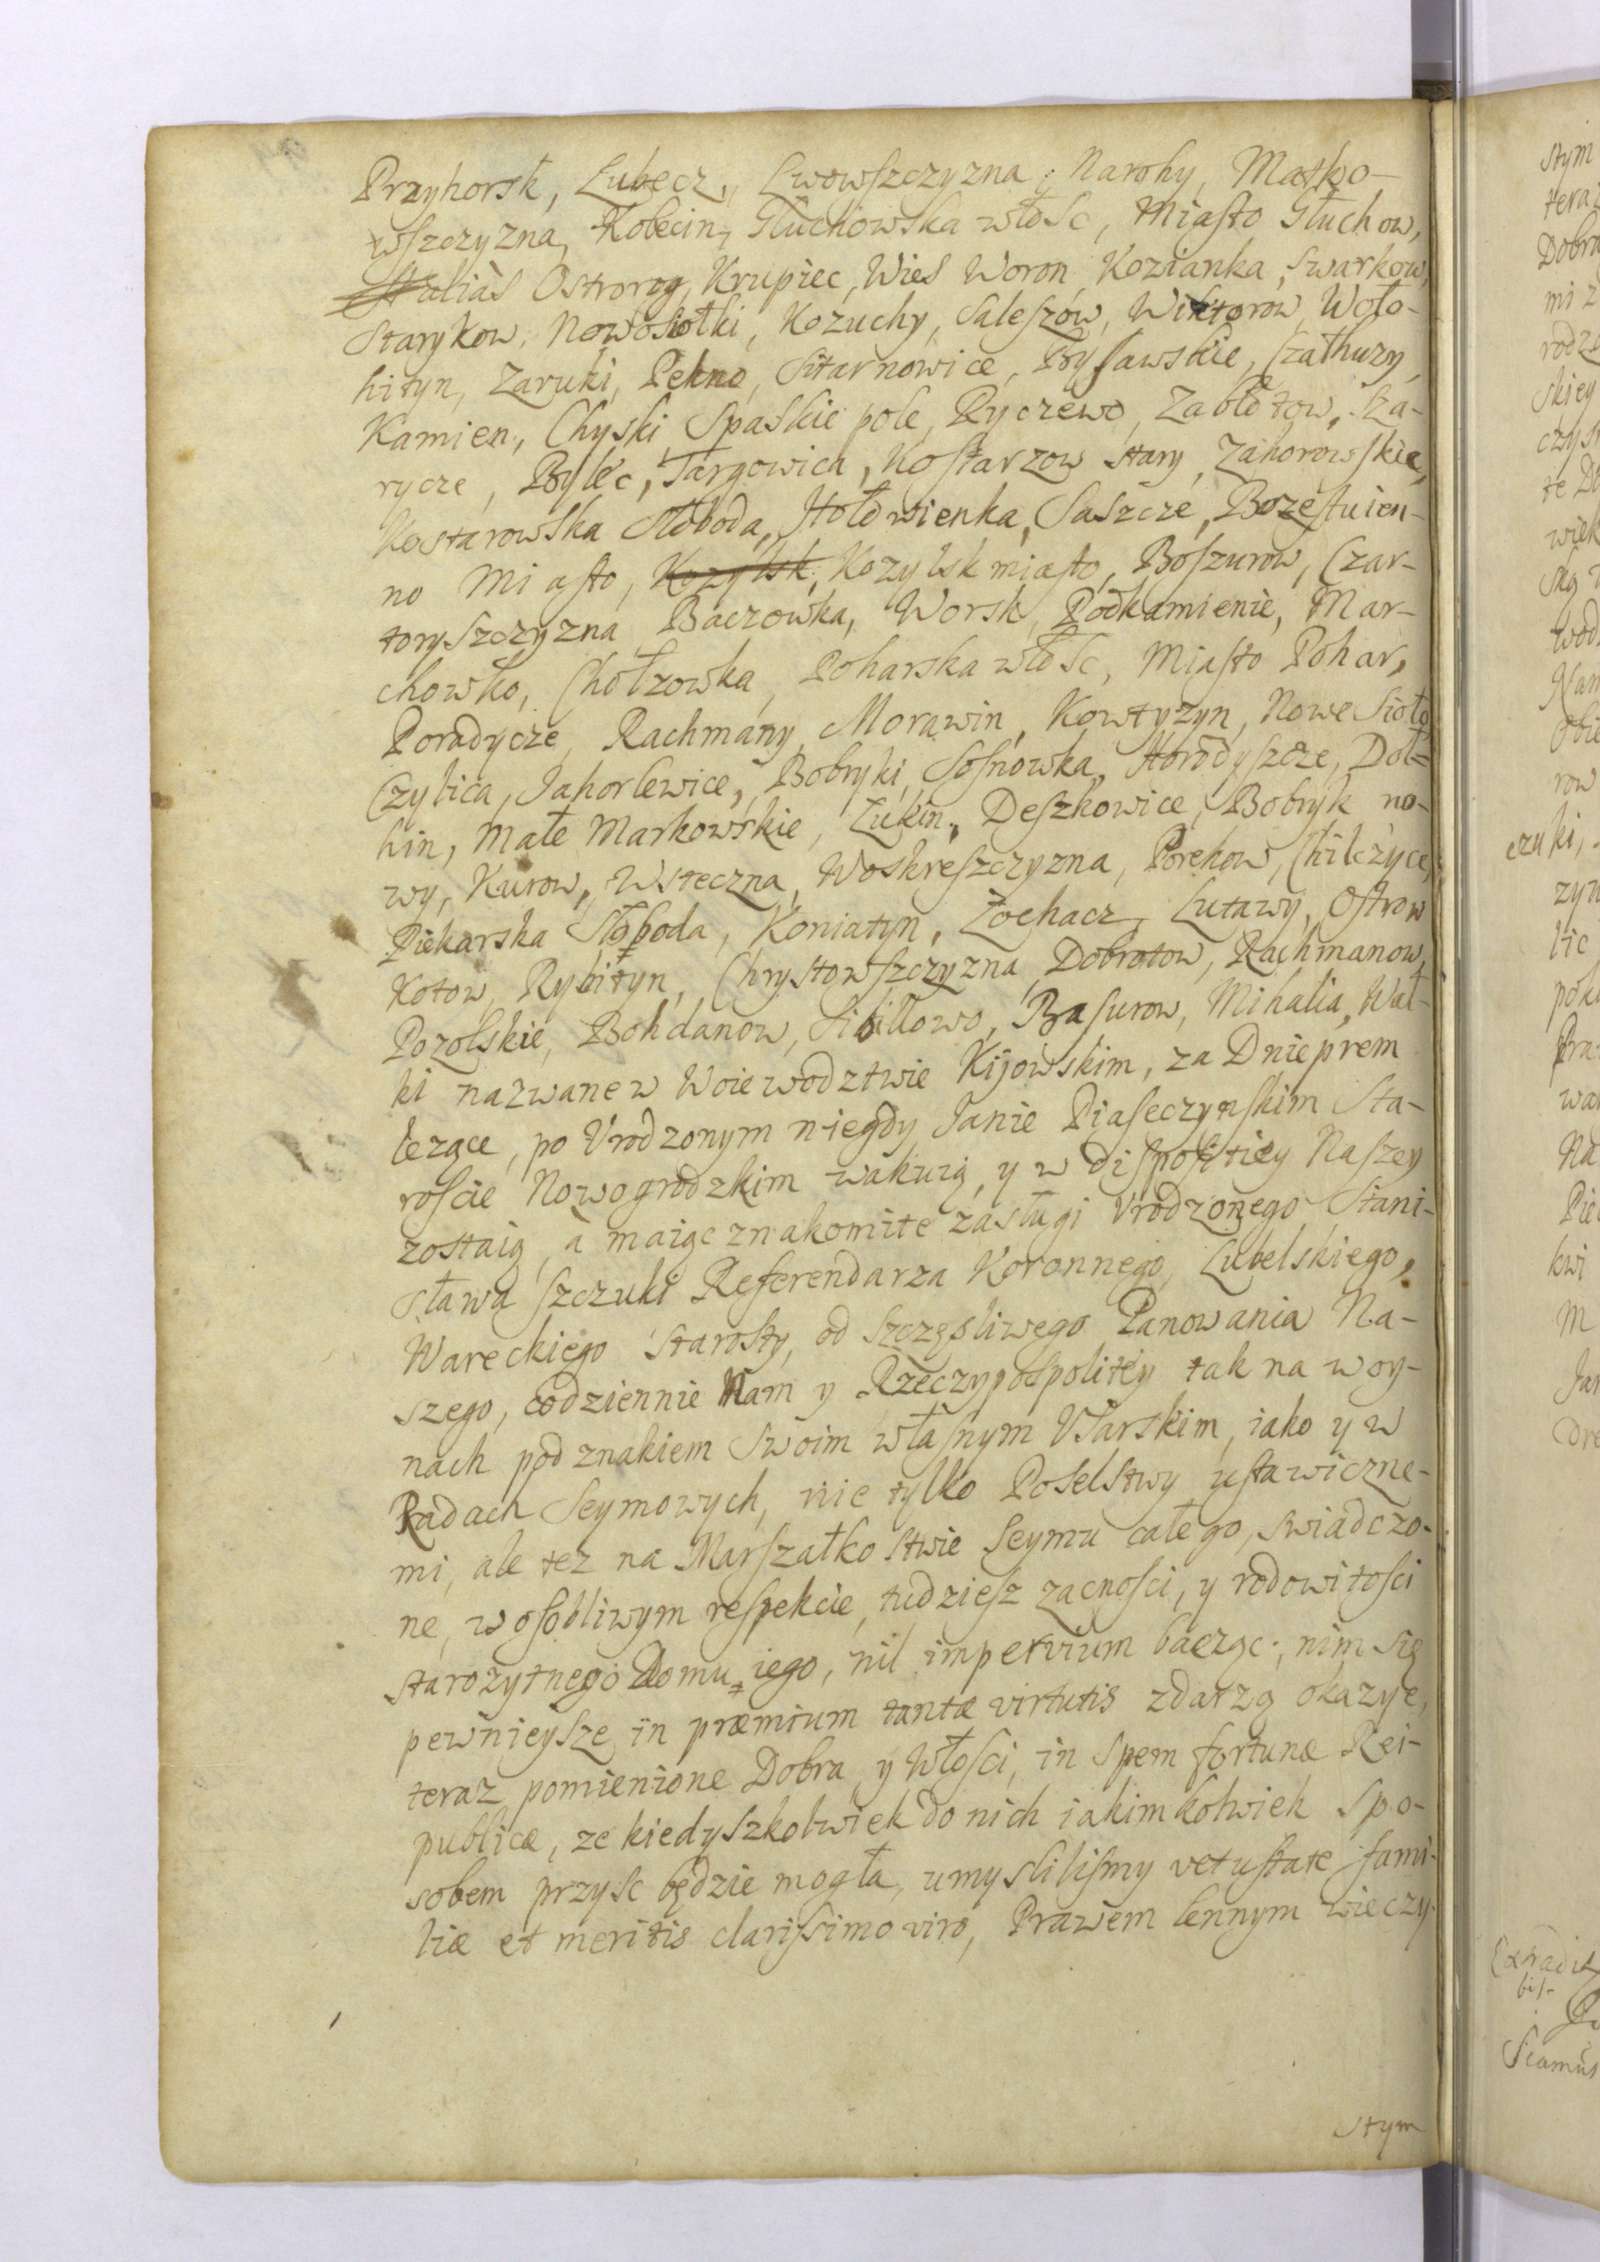 Przyhorsk, Lubecz, Lwowszczyzna, Narohy, Masko-
wszczyzna, Kobecin, Głuchowska włośc, Miasto Głuchow,
alias Ostrorog, Krupiec, Wies Woron, Kozianka, Swarkow,
Starykow, Nowosiołki, Kozuchy, Saleszów, Wiktorow, Woło-
hityn, Zaruki, Pekno, Sitarnowice, Prysawskie, Czałhuzy,
Kamien, Chyski, Spaskie pole, Ryczewo, Zabłotow, Sza-
rycze, Bylec, Targowica, Kostarzow stary, Zahorowskie,
Kostarowska Słoboda, Hołowienka, Saszcze, Bozestwien-
no Miasto, Kozylsk, Kozylsk miasto, Boszurow, Czar-
toryszczyzna, Baczowka, Worsk, Podkamienie, Mar-
chowko, Chołzowka, Poharska włośc, Miasto Pohar,
Poradycze, Rachmany, Morawin, Kowtyzyn, Nowe Sioło
Czylica, Jahorlewice, Bobryki, Sosnowka, Horodyszcze, Doł-
hin, Małe Markowskie, Lukin, Deszkowice, Bobryk no-
wy, Kurow, Wsteczna, Woskreszczyzna, Porekow, Chilczyce,
Piekarska Słoboda, Koniatyn, Zochacz, Lutawy, Ostrow
Kotow, Rybityn, Chrystowszczyzna, Dobrotow, Rachmanow,
Pozolskie, Bohdanow, Sibillowo, Basurow, Mihalia, Wał-
ki nazwane w Woiewodztwie Kijowskim, za Dnieprem
lezące, po Urodzonym niegdy Janie Piaseczynskim Sta-
roscie Nowogrodzkim wakuią, y w dispositiey Naszey
zostaią, a maiąc znakomite zasługi Urodzonego Stani-
sława Szczuki Referendarza Koronnego, Lubelskiego,
Wareckiego Starosty, od szczęsliwego Panowania Na-
szego, codziennie Nam y Rzeczypospolitey tak na woy-
nach pod znakiem swoim własnym Usarskim, iako y w
Radach Seymowych, nie tylko Poselstwy ustawiczne-
mi, ale tez na Marszałkostwie Seymu całego, swiadczo-
ne, w osobliwym respekcie, tudziesz zacnosci, y rodowitosci
starozytnego Domu iego, nil impervium bacząc, nim się
pewnieysze in præmium tantæ virtutis zdarzą okazye,
teraz pomienione Dobra y Włosci, in spem fortunæ Rei-
publicæ, ze kiedyszkolwiek do nich iakimkolwiek spo-
sobem przysc będzie mogła, umyslilismy vetustate fami-
liæ et meritis clarissimo viro, Prawem lennym wieczy-
stym
stym
teraz
Dobra
mi z
rodz
skiey
te Do
wiek
ską
wod
Nam
obie
row
czuki,
zyn
lic
Na
kwi
M
Jan
Extradit